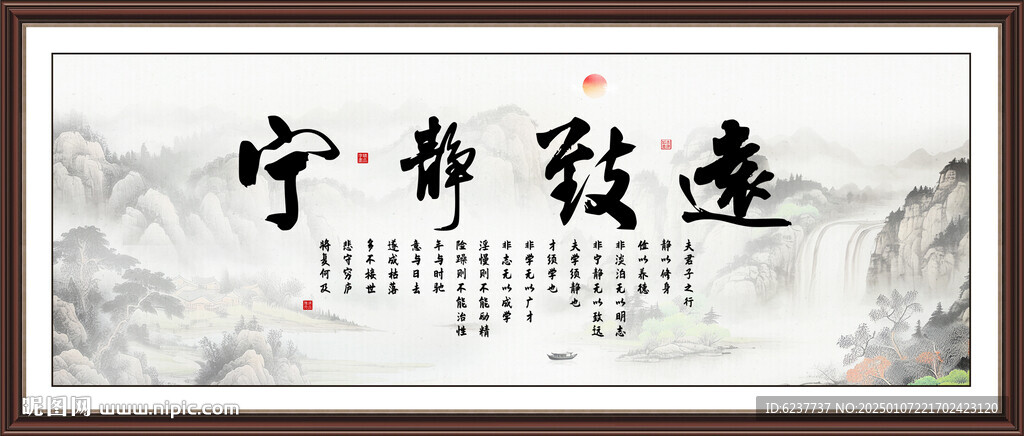 宁静致遠
夫君子之行
静以修身
俭以养德
非淡泊无以明志
非宁静无以致远
夫学须静也
才须学也
非学无以广才
非志无以成学
淫慢则不能励精
险躁则不能治性
年与时驰
意与日去
遂成枯落
多不接世
悲守穷庐
将复何及
昵图网 www.nipic.com
ID:6237737 NO:20250107221702423120